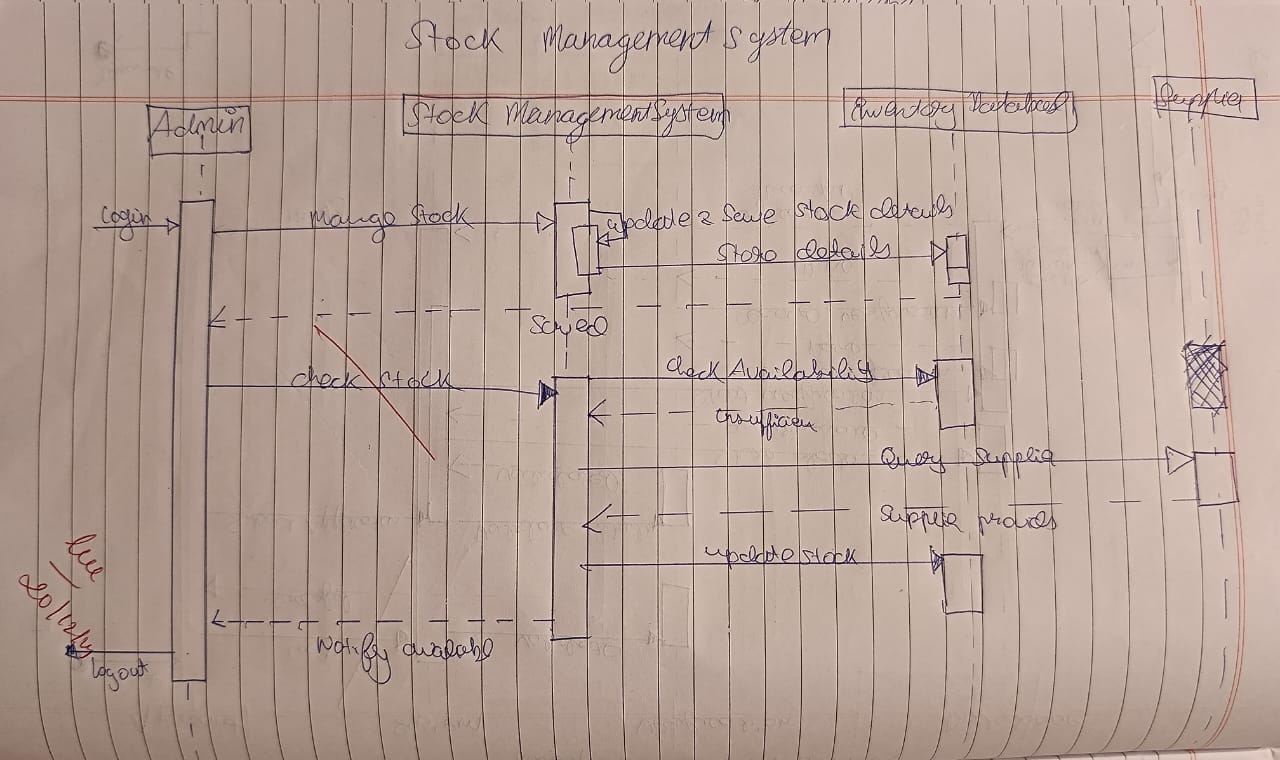 Stock Management System
Admin
Stock Management System
Inventory Database
Supplier
Login
Mango Stock
update & Save stock details
Store details
Saved
check stock
Check Availability
Insufficien
Query Supplia
Supplier
update stock
Notify availabl
logout